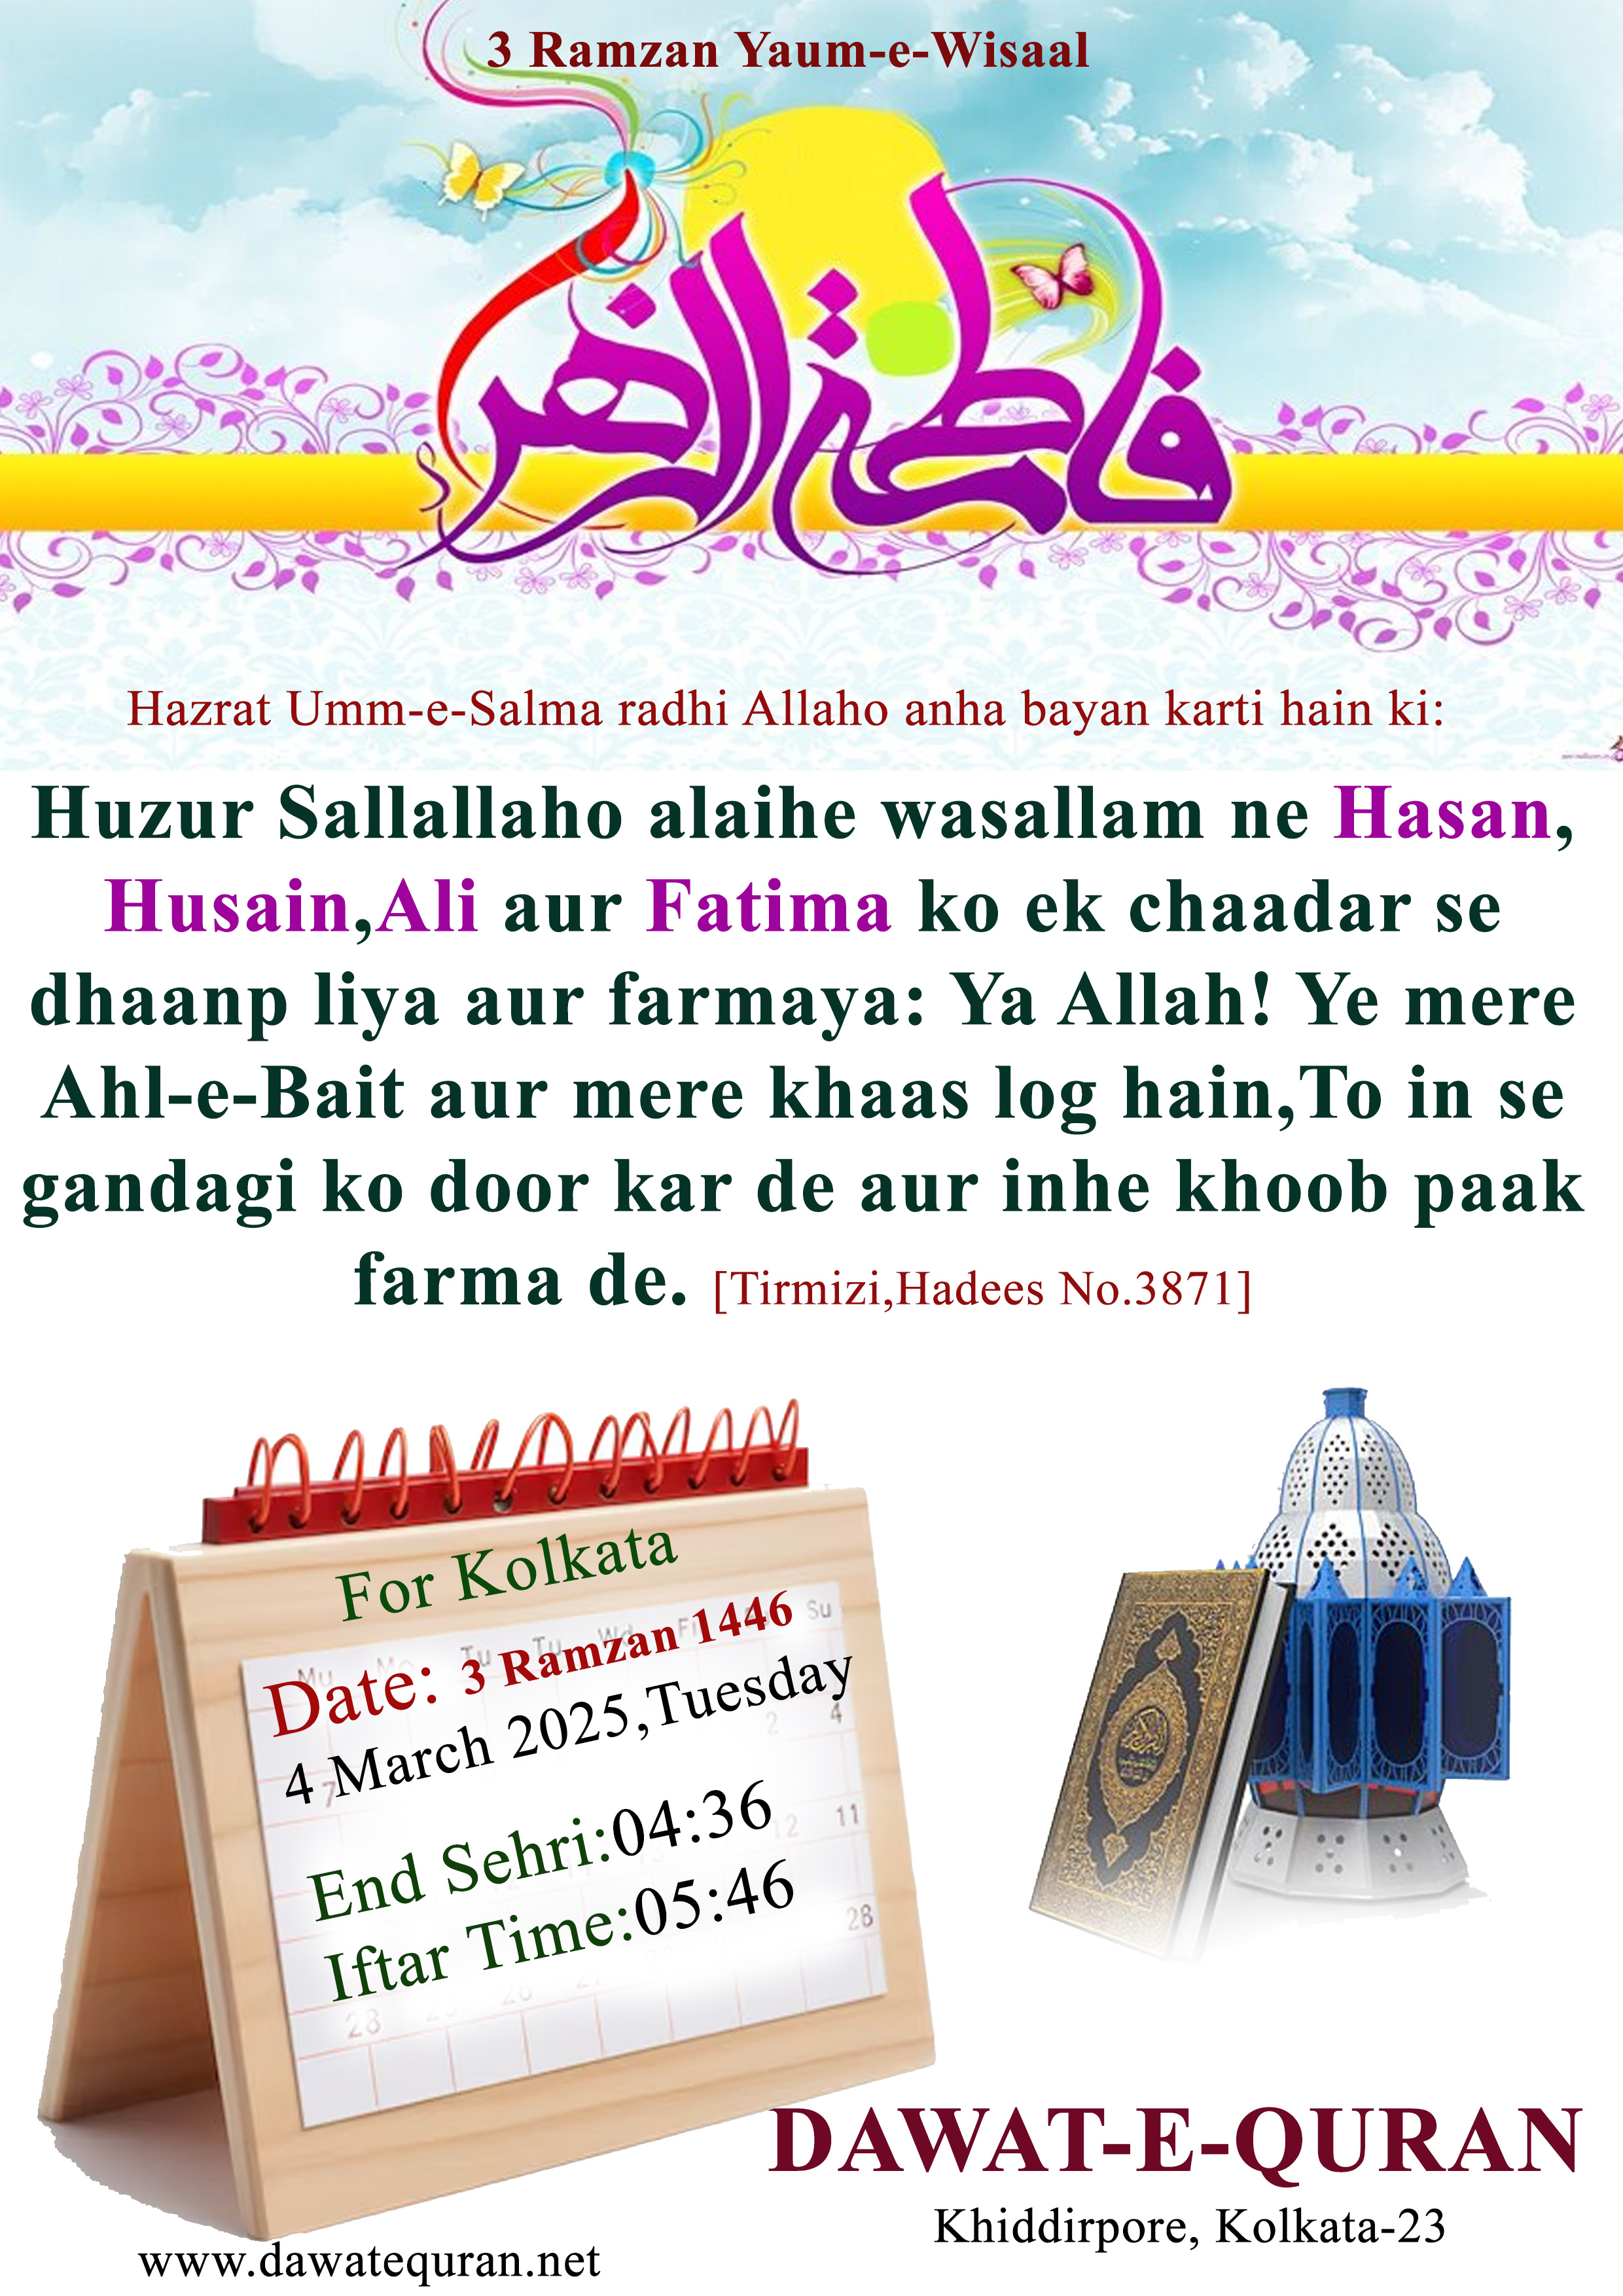 3 Ramzan Yaum-e-Wisaal
فاطمة الزهرا
Hazrat Umm-e-Salma radhi Allaho anha bayan karti hain ki:
Huzur Sallallaho alaihe wasallam ne Hasan,
Husain,Ali aur Fatima ko ek chaadar se
dhaanp liya aur farmaya: Ya Allah! Ye mere
Ahl-e-Bait aur mere khaas log hain,To in se
gandagi ko door kar de aur inhe khoob paak
farma de. [Tirmizi,Hadees No.3871]
For Kolkata
Mu Mo Tu Tu Wd Fr Su
Date: 3 Ramzan 1446
4 March 2025,Tuesday
2 4
7
End Sehri:04:36
12 11
Iftar Time:05:46
28
28 25 26
DAWAT-E-QURAN
Khiddirpore, Kolkata-23
www.dawatequran.net